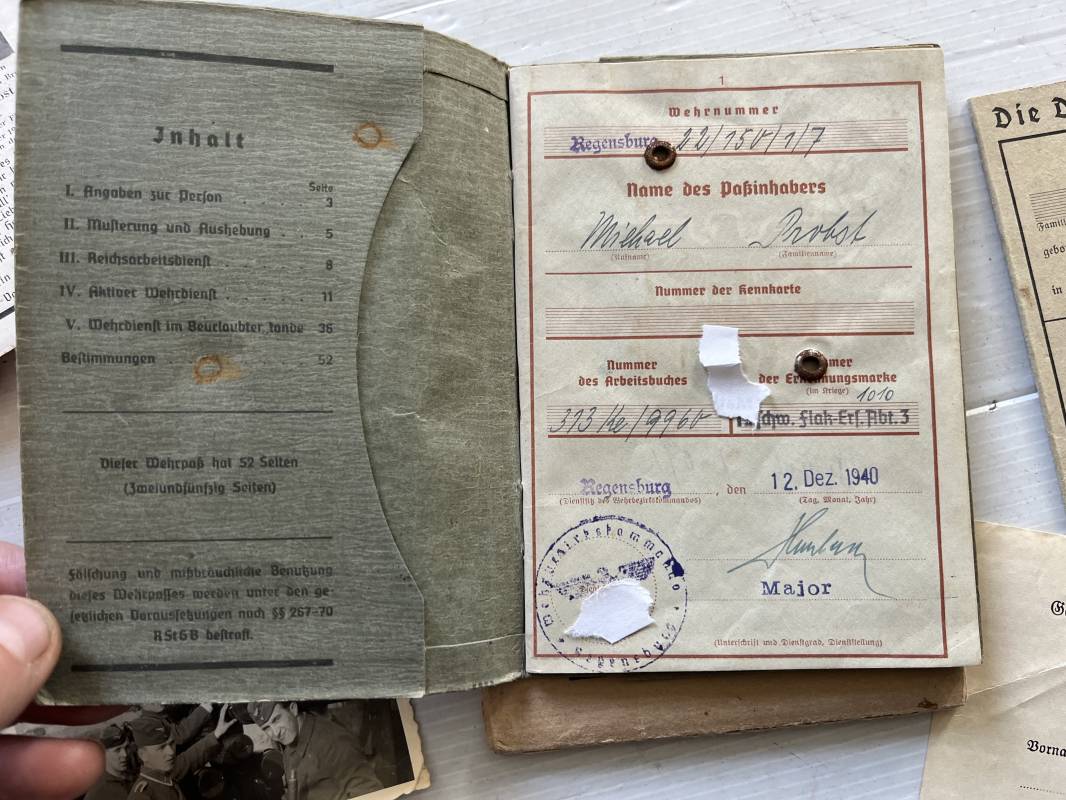 Inhalt
Seite
I. Angaben zur Person . . . . 3
II. Musterung und Aushebung . . 5
III. Reichsarbeitsdienst . . . . 8
IV. Aktiver Wehrdienst . . . . 11
V. Wehrdienst im Beurlaubtenstande 36
Bestimmungen . . . . 52
Dieser Wehrpaß hat 52 Seiten
(Zweiundfünfzig Seiten)
Fälschung und mißbräuchliche Benutzung
dieses Wehrpasses werden unter den ge-
setzlichen Voraussetzungen nach §§ 267-70
RStGB bestraft.
1
Wehrnummer
Regensburg 22/150/1/7
Name des Paßinhabers
Michael Probst
(Rufname) (Familienname)
Nummer der Kennkarte
Nummer
des Arbeitsbuches
der Erkennungsmarke
(im Kriege) 1010
schw. Flak-Ers. Abt. 3
Regensburg, den 12. Dez. 1940
(Dienstsitz des Wehrbezirkskommandos) (Tag, Monat, Jahr)
Major
(Unterschrift und Dienstgrad, Dienststellung)
Wehrbezirkskommando
Regensburg
Die
Famili
gebo
in
Vorna